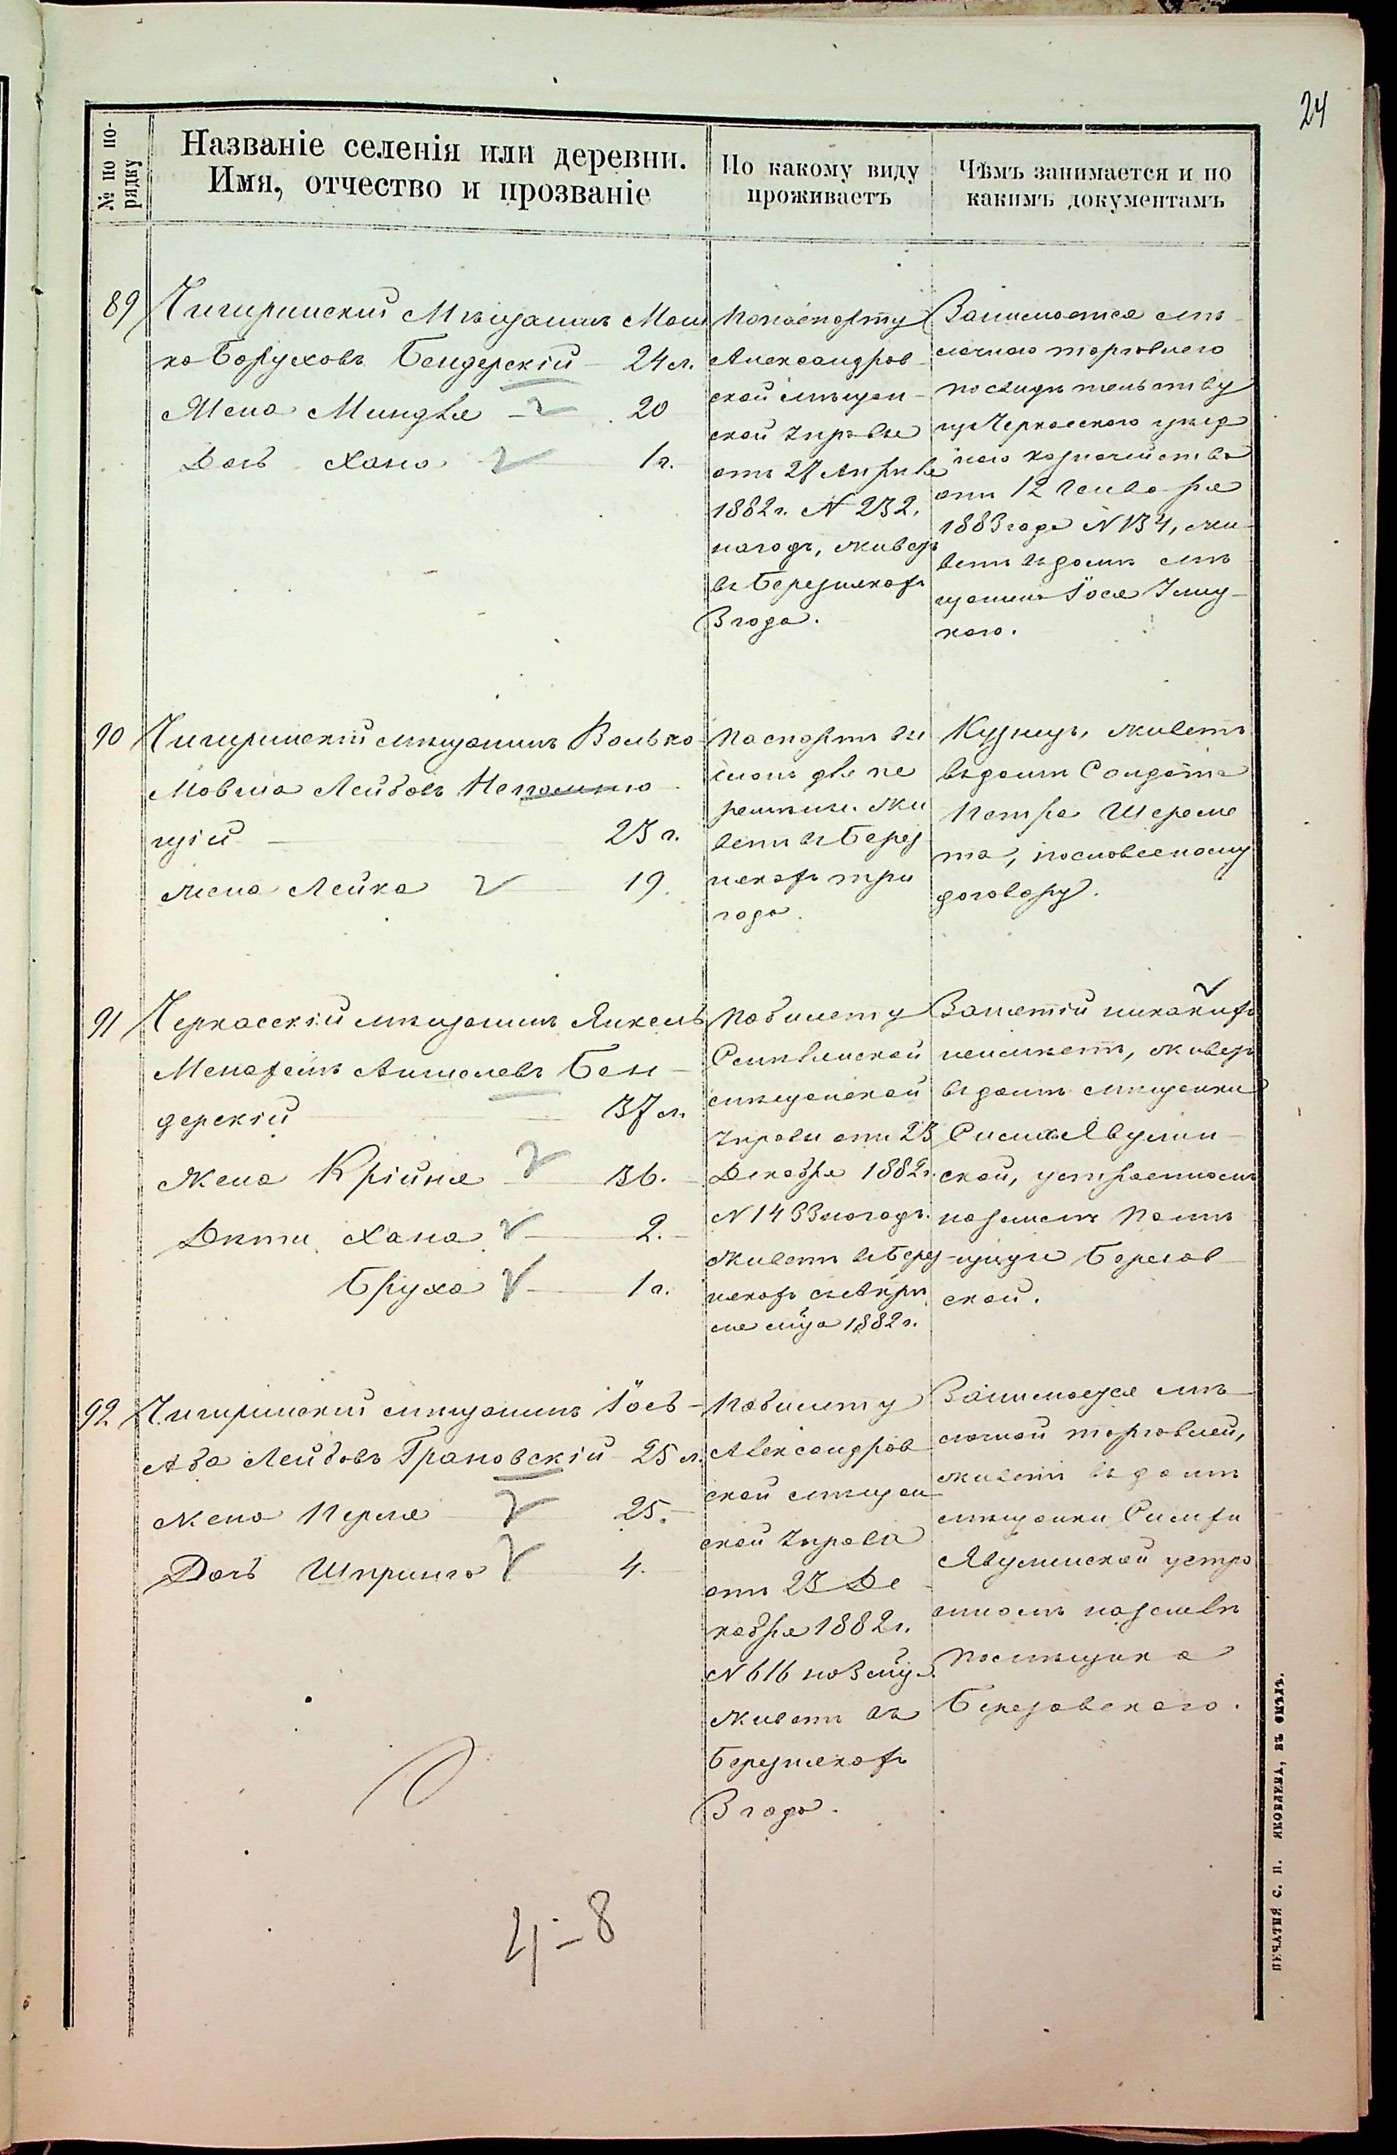 24
№ по по-
рядку
Названіе селенія или деревни.
Имя, отчество и прозваніе
По какому виду
проживаетъ
Чѣмъ занимается и по
какимъ документамъ
89
Чигиринскій Мѣщанинъ Мош
ко Боруховъ Бендерскій 24 л.
Жена Миндля 20
Дочь Хана 1 г.
По паспорту
Александров-
ской мѣщан-
ской Управы
отъ 27 Апрѣля
1882 г. № 232.
на годъ, живетъ
въ Березнякахъ
3 года.
Занимается мѣ-
лочною торговлею
по свидѣтельству
изъ Черкасского уѣзд
наго казначейства
отъ 12 Генваря
1883 года № 134, жи-
ветъ въ домѣ мѣ
щанина Іося
каго.
90
Чигиринскій мѣщанинъ Волько
Мовша Лейбовъ
щій 23 г.
жена Лейка 19.
Паспортъ вы
сланъ для пе
ремѣны. Жи
ветъ въ Берез
някахъ три
года.
Кузнецъ, живетъ
въ домѣ Солдата
Петра Шереме
та, по словесному
договору.
91
Черкасскій мѣщанинъ Янкель
Менахемъ Аншелевъ Бен-
дерскій 37 л.
Жена Крійня 36.
Дѣти Хана 2.
Бруха 1 г.
По билету
мѣщанской
Управы отъ 23
Декабря 1882 г.
№ 1433 на годъ.
Живетъ въ Берез
някахъ съ
мца 1882 г.
Занятій никакихъ
неимѣетъ, живетъ
въ домѣ мѣщанки
ской, устроенномъ
на землѣ Помѣ
щицы Березов-
ской.
92
Чигиринскій мѣщанинъ Іось-
Аба Лейбовъ Грановскій 25 л.
жена Перля 25.
Дочь Шпринга 4.
По билету
Александров
ской мѣщан-
ской Управы
отъ 23 Де-
кабря 1882 г.
№ 616 на 3 мца.
Живетъ въ
Березнякахъ
3 года.
Занимается мѣ-
лочной торговлей,
живетъ въ домѣ
мѣщанки
устро
енномъ на землѣ
помѣщика
Березовскаго.
4 - 8
ПЕЧАТНЯ С. П. ЯКОВЛЕВА, ВЪ СМѢЛѢ.